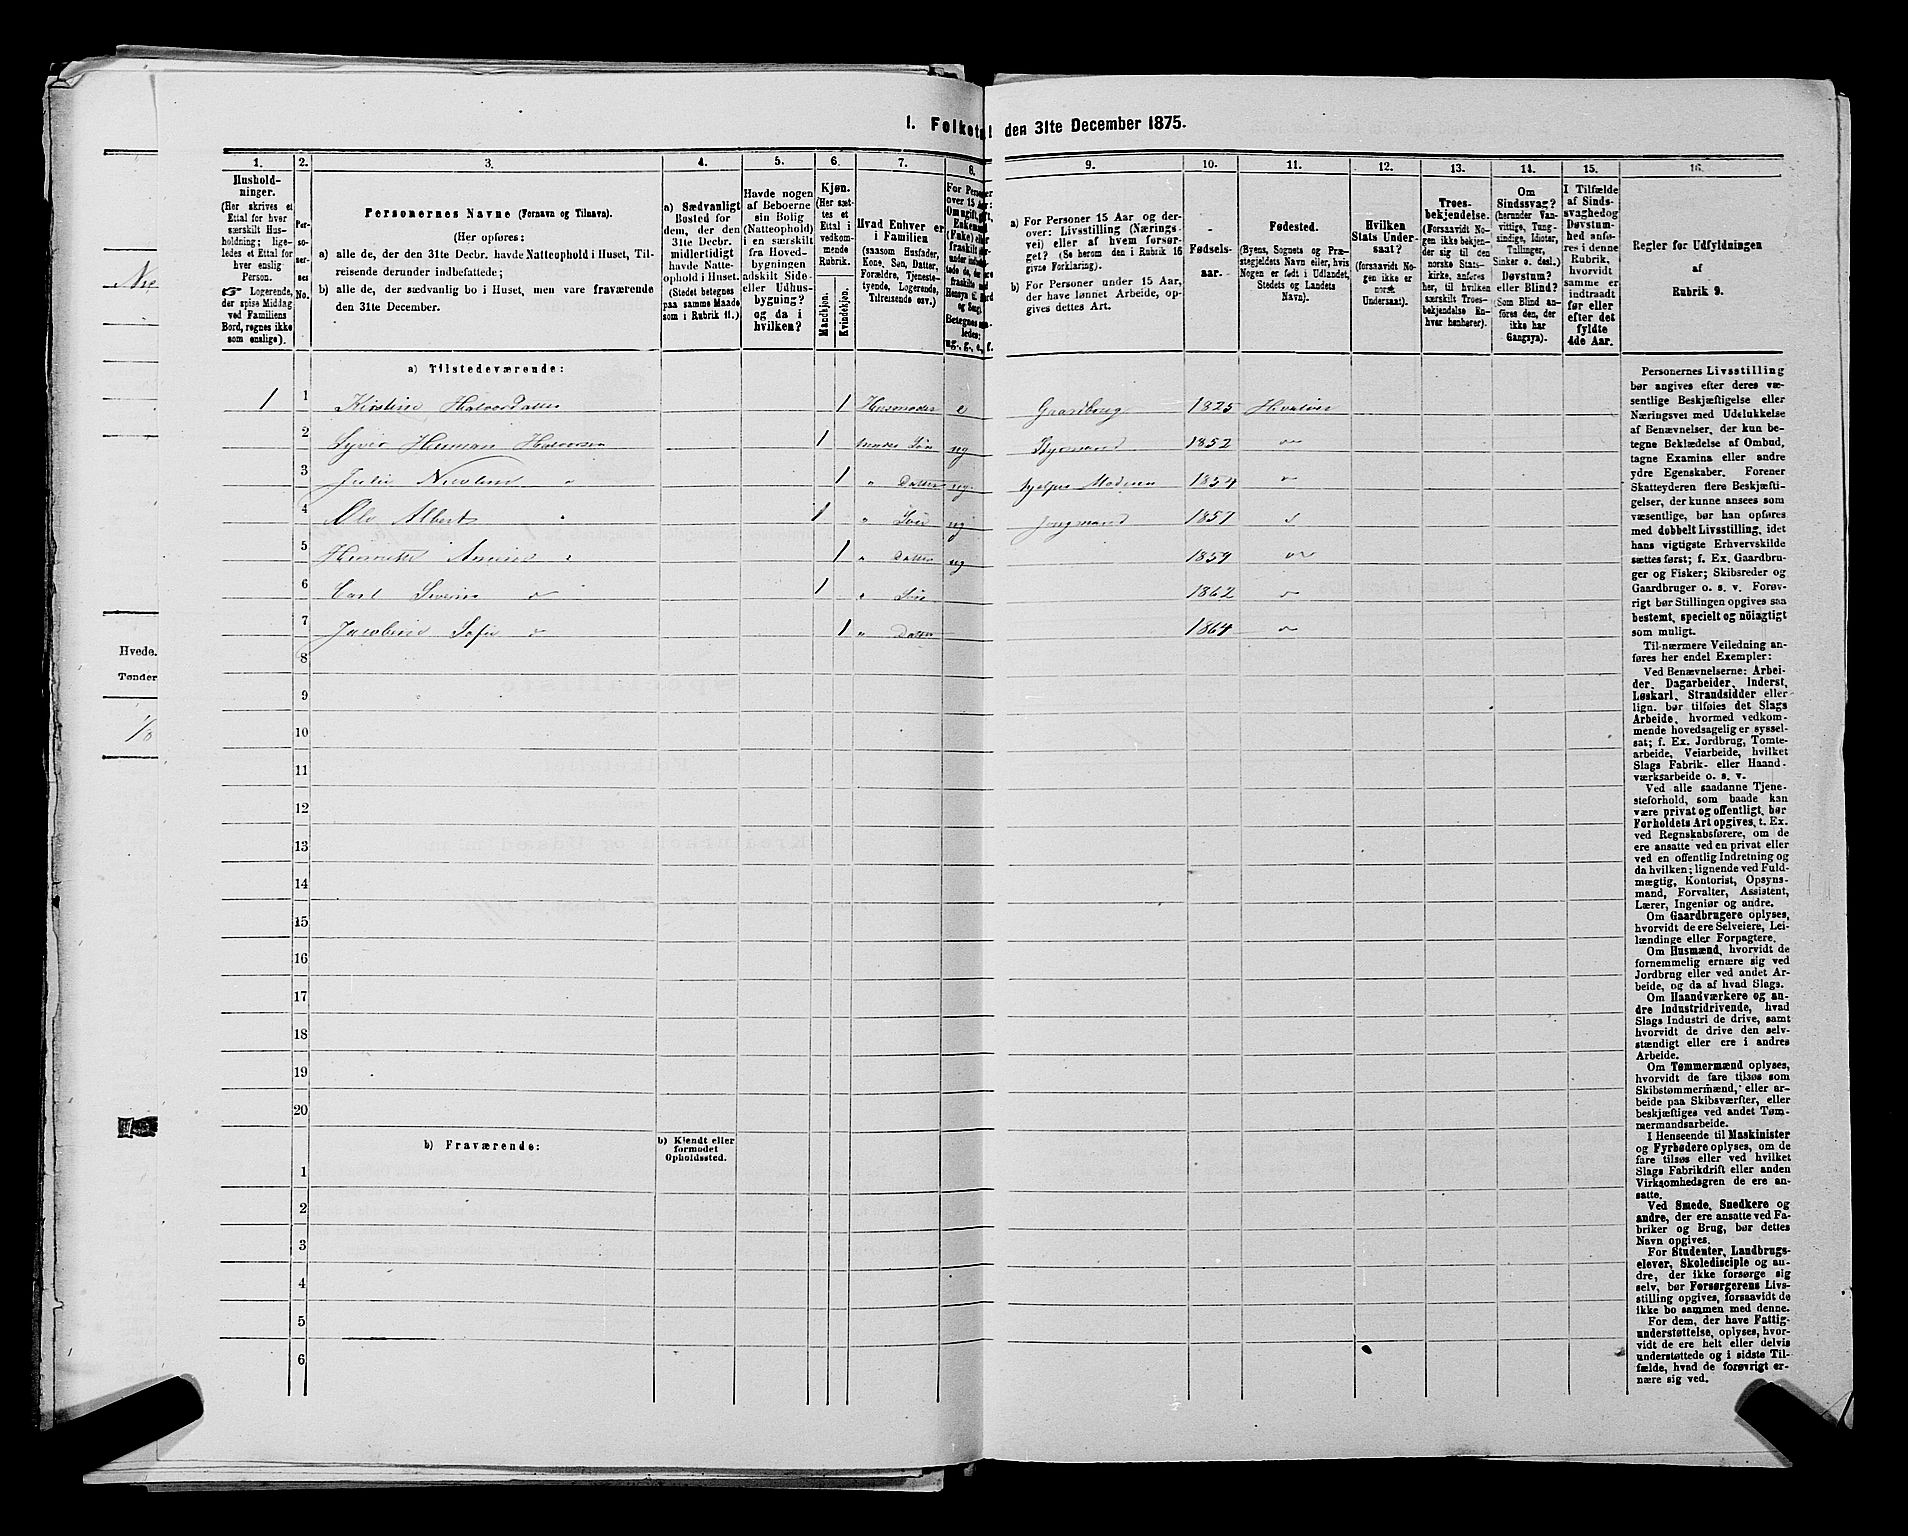 1. Folket
den 31te December 1875.
1.
2.
3.
4.
5.
6.
7.
8.
9.
10.
11.
12.
13.
14.
15.
16.
Hushold-
ninger.
(Her skrives et
Ettal for hver
særskilt Hus-
holdning; lige-
ledes et Ettal for
hver enslig
Person.
☞ Logerende,
der spise Middag
ved Familiens
Bord, regnes ikke
som enslige).
Per-
so-
ner-
nes
No.
Personernes Navne (Fornavn og Tilnavn).
(Her opføres:
a) alle de, der den 31te Decbr. havde Natteophold i Huset, Til-
reisende derunder indbefattede;
b) alle de, der sædvanlig bo i Huset, men vare fraværende
den 31te December.
a) Sædvanligt
Bosted for
dem, der den
31te Decbr.
midlertidigt
havde Natte-
ophold i Huset.
(Stedet betegnes
paa samme Maade
som i Rubrik 11.)
Havde nogen
af Beboerne
sin Bolig
(Natteophold)
i en særskilt
fra Hoved-
bygningen
adskilt Side-
eller Udhus-
bygning?
og da i
hvilken?
Kjøn.
(Her sæt-
tes et
Ettal i
vedkom-
mende
Rubrik.
Mandkjøn.
Kvindekjøn.
Hvad Enhver er
i Familien
(saasom Husfader,
Kone, Søn, Datter,
Forældre, Tjeneste-
tyende, Logerende,
Tilreisende osv.)
For Person
over 15 Aar:
Om ugift, gift,
Enkemand
(Enke) eller
fraskilt
Betegnes saa-
ledes:
ug., g., e., f.
a) For Personer 15 Aar og der-
over: Livsstilling (Nærings-
vei) eller af hvem forsør-
get? (Se herom den i Rubrik 16
givne Forklaring).
b) For Personer under 15 Aar,
der have lønnet Arbeide, op-
gives dettes Art.
Fødsels-
aar.
Fødested.
(Byens, Sognets og Præ-
stegjeldets Navn eller, hvis
Nogen er født i Udlandet,
Stedets og Landets
Navn).
Hvilken
Stats Under-
saat?
(forsaavidt No-
gen ikke er
norsk
Undersaat).
Troes-
bekjendelse.
(Forsaavidt No-
gen ikke bekjen-
der sig til den
norske Stats-
kirke, anføres
her, til hvilken
særskilt Troes-
bekjendelse En-
hver henhører).
Om
Sindssvag?
(herunder Van-
vittige, Tung-
sindige, Idioter,
Tullinger,
Sinker o. desl.)
Døvstum?
eller Blind?
(Som Blind an-
føres den, der
ikke har
Gangsyn).
I Tilfælde
af Sinds-
svaghed og
Døvstum-
hed anfø-
res i denne
Rubrik,
hvorvidt
samme er
indtraadt
før eller
efter det
fyldte
4de Aar.
Regler for Udfyldningen
af
Rubrik 9.
a) Tilstedeværende:
1 1 Kirstine Halvordatter 1 Husmoder e Gaardbrug 1825 Hvaløer
2 Syver Herman Halvorsen 1 Søn ug 1852 do
3 Julie 1 " Datter ug hjelper Moderen 1854 do
4 Ole Albert " 1 " Søn ug Jungmand 1857
5 Annine " 1 " Datter ug 1859 do
6 Carl Severin do 1 " Søn 1862 do
7 Jacobine Sofie do 1 " Datter 1864 do
8
9
10
11
12
13
14
15
16
17
18
19
20
b) Fraværende:
b) Kjendt eller
formodet
Opholdssted.
1
2
3
4
5
6
Personernes Livsstilling
bør angives efter deres væ-
sentlige Beskjæftigelse eller
Næringsvei med Udelukkelse
af Benævnelser, der kun be-
tegne Beklædelse af Ombud,
tagne Examina eller andre
ydre Egenskaber. Forener
Skatteyderen flere Beskjæfti-
gelser, der kunne ansees som
væsentlige, bør han opføres
med dobbelt Livsstilling, idet
hans vigtigste Erhvervskilde
sættes først; f. Ex. Gaardbru-
ger og Fisker; Skibsreder og
Gaardbruger o. s. v. Forøv-
rigt bør Stillingen opgives saa
bestemt, specielt og nöiagtigt
som muligt.
Til nærmere Veiledning an-
føres her endel Exempler:
Ved Benævnelserne: Arbei-
der, Dagarbeider, Inderst,
Løskarl, Strandsidder eller
lign. bør tilføies det Slags
Arbeide, hvormed vedkom-
mende hovedsagelig er syssel-
sat; f. Ex. Jordbrug, Tomte-
arbeide, Veiarbeide, hvilket
Slags Fabrik- eller Haand-
værksarbeide o. s. v.
Ved alle saadanne Tjene-
steforhold, som baade kan
være privat og offentligt, bør
Forholdets Art opgives, t. Ex.
ved Regnskabsførere, om de
ere ansatte ved en privat eller
ved en offentlig Indretning og
da hvilken; lignende ved Fuld-
mægtig, Kontorist, Opsyns-
mand, Forvalter, Assistent,
Lærer, Ingeniør og andre.
Om Gaardbrugere oplyses,
hvorvidt de ere Selveiere, Lei-
lændinge eller Forpagtere.
Om Husmænd, hvorvidt de
fornemmelig ernære sig ved
Jordbrug eller ved andet Ar-
beide, og da af hvad Slags.
Om Haandværkere og an-
dre Industridrivende, hvad
Slags Industri de drive, samt
hvorvidt de drive den selv-
stændigt eller ere i andres
Arbeide.
Om Tømmermænd oplyses,
hvorvidt de fare tilsøs som
Skibstømmermænd, eller ar-
beide paa Skibsværfter, eller
beskjæftiges ved andet Tøm-
mermandsarbeide.
I Henseende til Maskinister
og Fyrbødere oplyses, om de
fare tilsøs eller ved hvilket
Slags Fabrikdrift eller anden
Virksomhedsgren de ere an-
satte.
Ved Smede, Snedkere og
andre, der ere ansatte ved Fa-
briker og Brug, bør dettes
Navn opgives.
For Studenter, Landbrugs-
elever, Skoledisciple og an-
dre, der ikke forsørge sig
selv, bør Forsørgerens Livs-
stilling opgives, forsaavidt de
ikke bo sammen med denne.
For dem, der have Fattig-
understøttelse, oplyses, hvor-
vidt de ere helt eller delvis
understøttede og i sidste Til-
fælde, hvad de forøvrigt er-
nære sig ved.
Hvede.
Tønder
1/8